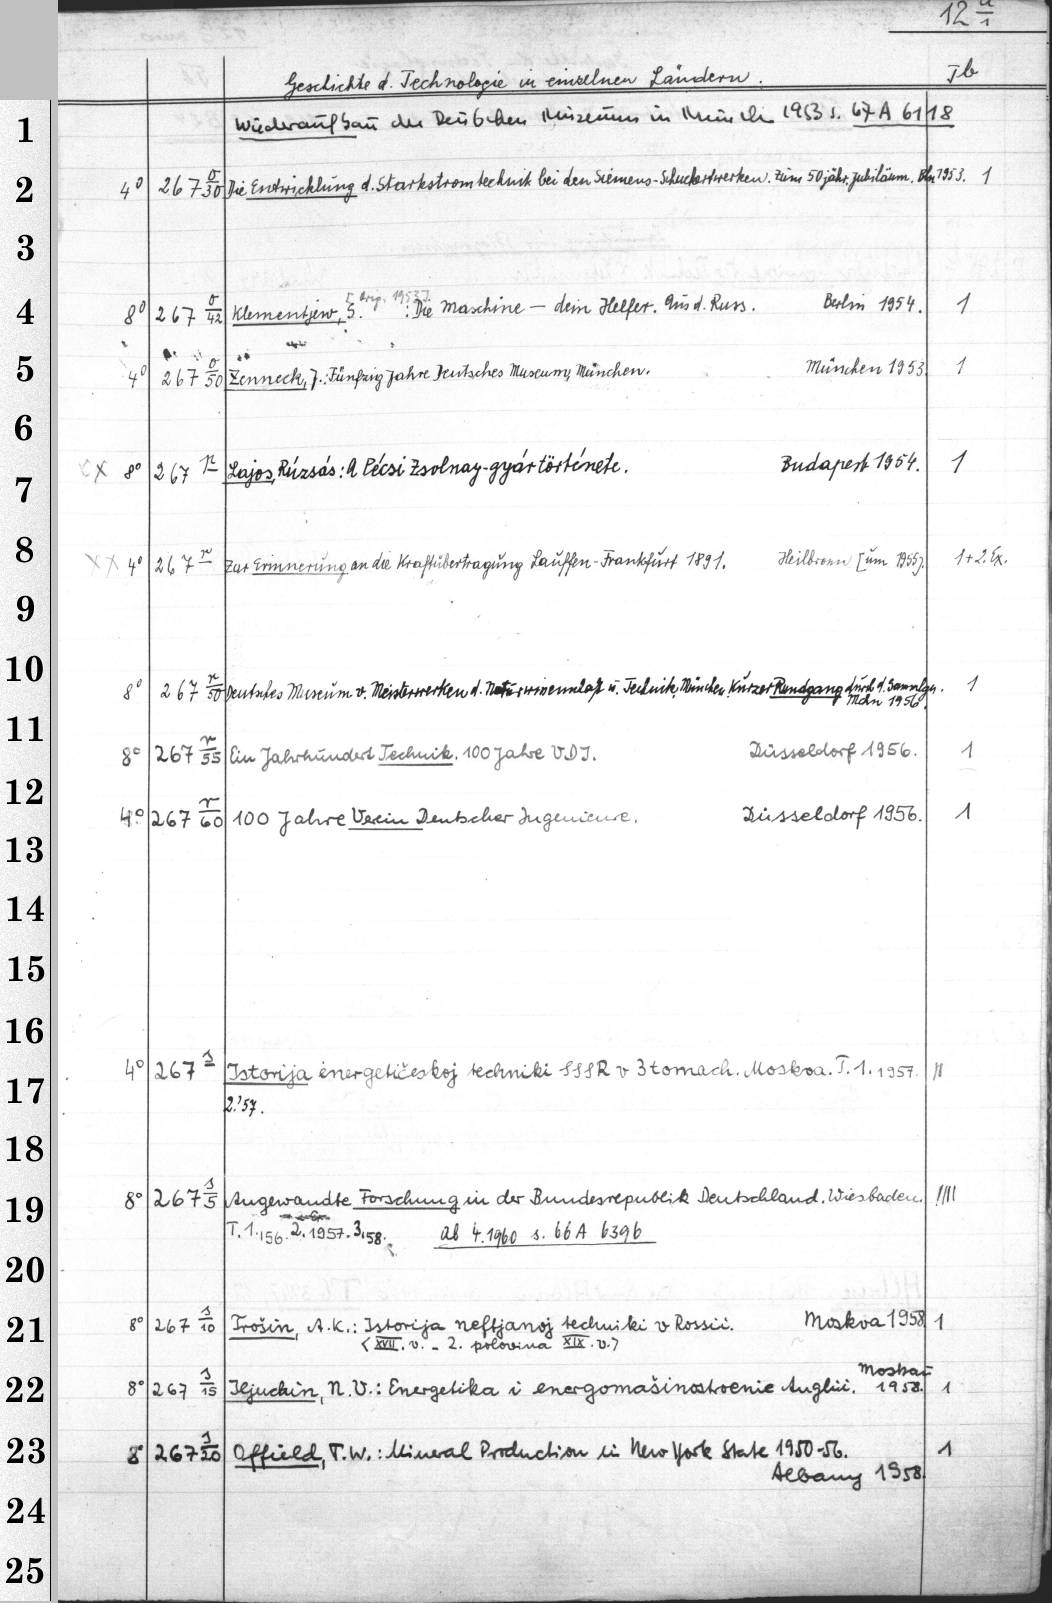 12 a/1
Geschichte d. Technologie in einzelnen Ländern. Tb
1 Wiederaufbau des Deutschen Museums in München 1953 s. 67 A 6118
2 4° 267 o/30 Die Entwicklung d. Starkstromtechnik bei den Siemens-Schuckertwerken. Zum 50jähr. Jubiläum. Bln 1953. 1
3
[Orig. 1953].
4 8° 267 o/42 Klementjew, S. : Die Maschine — dein Helfer. Aus d. Russ. Berlin 1954. 1
5 4° 267 o/50 Zenneck, J.: Fünfzig Jahre Deutsches Museum, München. München 1953. 1
6
7 x X 8° 267 p Lajos, Rúzsás: A Pécsi Zsolnay-gyár története. Budapest 1954. 1
8 X X 4° 267 r Zur Erinnerung an die Kraftübertragung Lauffen-Frankfurt 1891. Heilbronn [um 1955]. 1+2.Ex.
9
10 8° 267 r/50 Deutsches Museum v. Meisterwerken d. Naturwissenschaft u. Technik, München. Kurzer Rundgang durch d. Sammlgn. 1
Mchn 1956.
11 8° 267 r/55 Ein Jahrhundert Technik. 100 Jahre VDI. Düsseldorf 1956. 1
12 4° 267 r/60 100 Jahre Verein Deutscher Ingenieure. Düsseldorf 1956. 1
13
14
15
16
17 4° 267 s Istorija ėnergetičeskoj techniki SSSR v 3 tomach. Moskva. T. 1. 1957. II
2.'57.
18
19 8° 267 s/5 Angewandte Forschung in der Bundesrepublik Deutschland. Wiesbaden. IIII
T. 1.'56. 2.1957. 3.'58. ab 4.1960 s. 66 A 6396
20
21 8° 267 s/10 Trošin, A.K.: Istorija neftjanoj techniki v Rossii. Moskva 1958 1
<XVII. v. - 2. polovina XIX. v.>
Moskau
22 8° 267 s/15 Iljuchin, N.V.: Energetika i energomašinostroenie Anglii. 1958. 1
23 8° 267 s/20 Offield, T.W.: Mineral Production in New York State 1950-56. 1
Albany 1958.
24
25